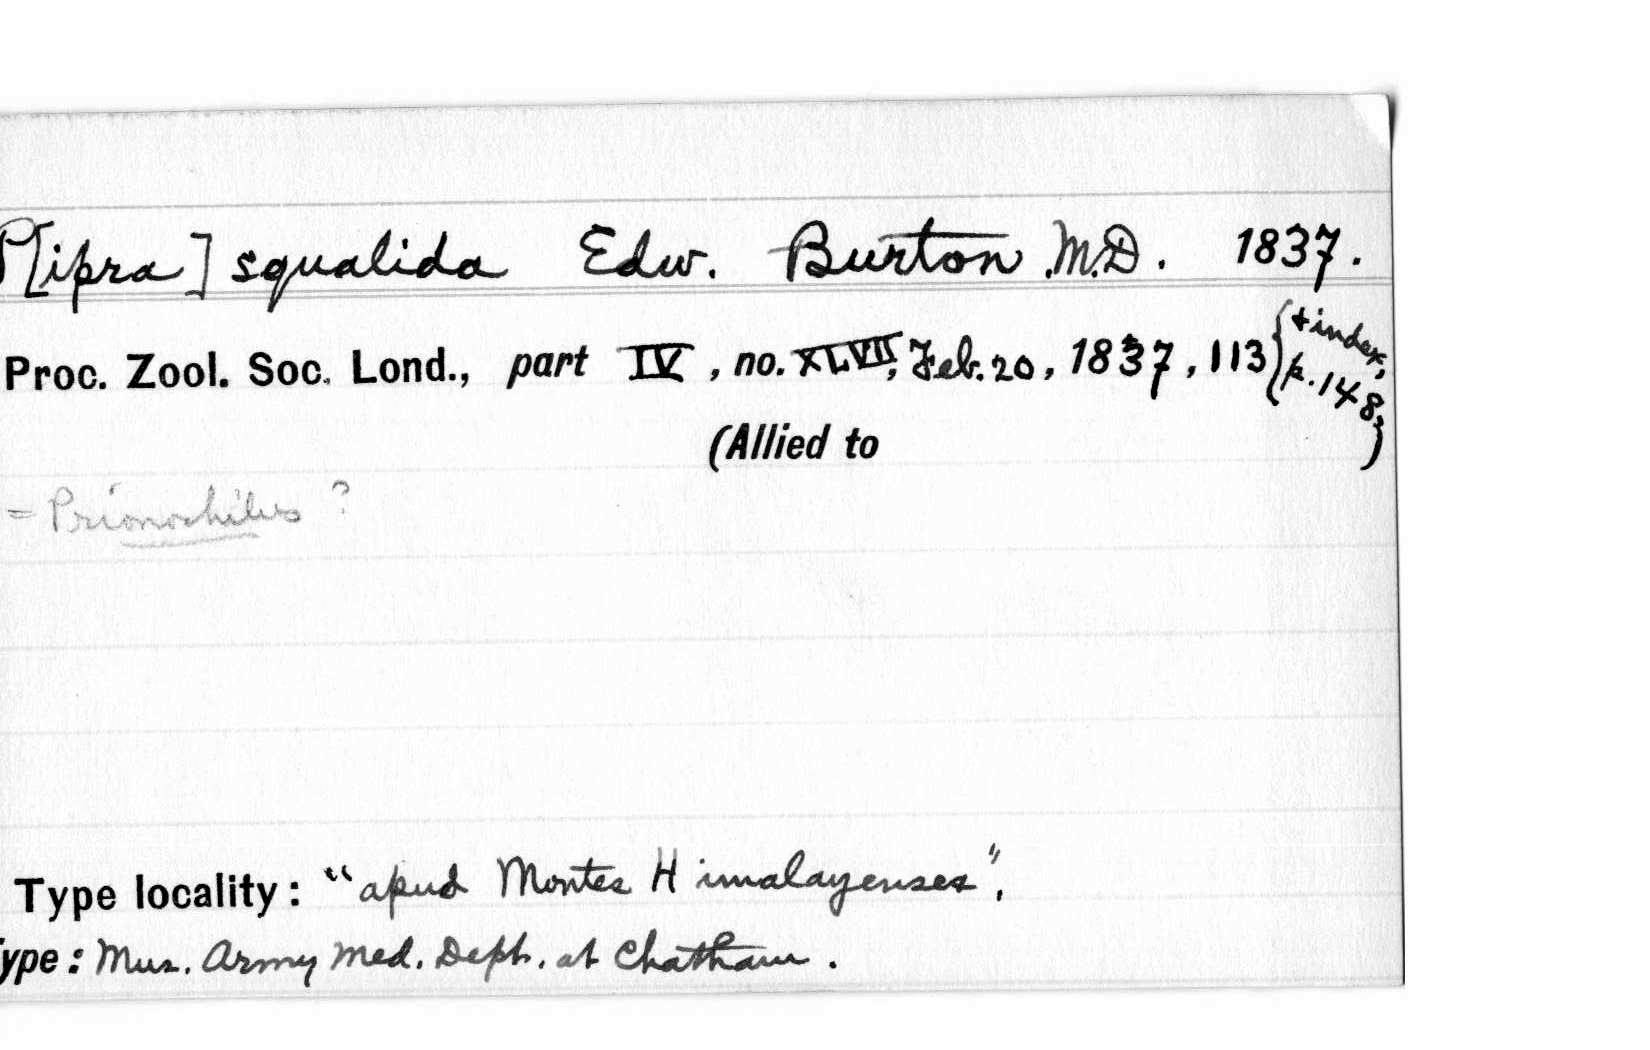 P[ipra] squalida Edw. Burton M.D. 1837.
Proc. Zool. Soc. Lond., part IV, no. XLVII, Feb. 20, 1837, 113 {+ index, p. 148,
(Allied to )
= Prionochilus ?
Type locality: "apud Montes Himalayenses".
ype: Mus. Army Med. Dept. at Chatham.